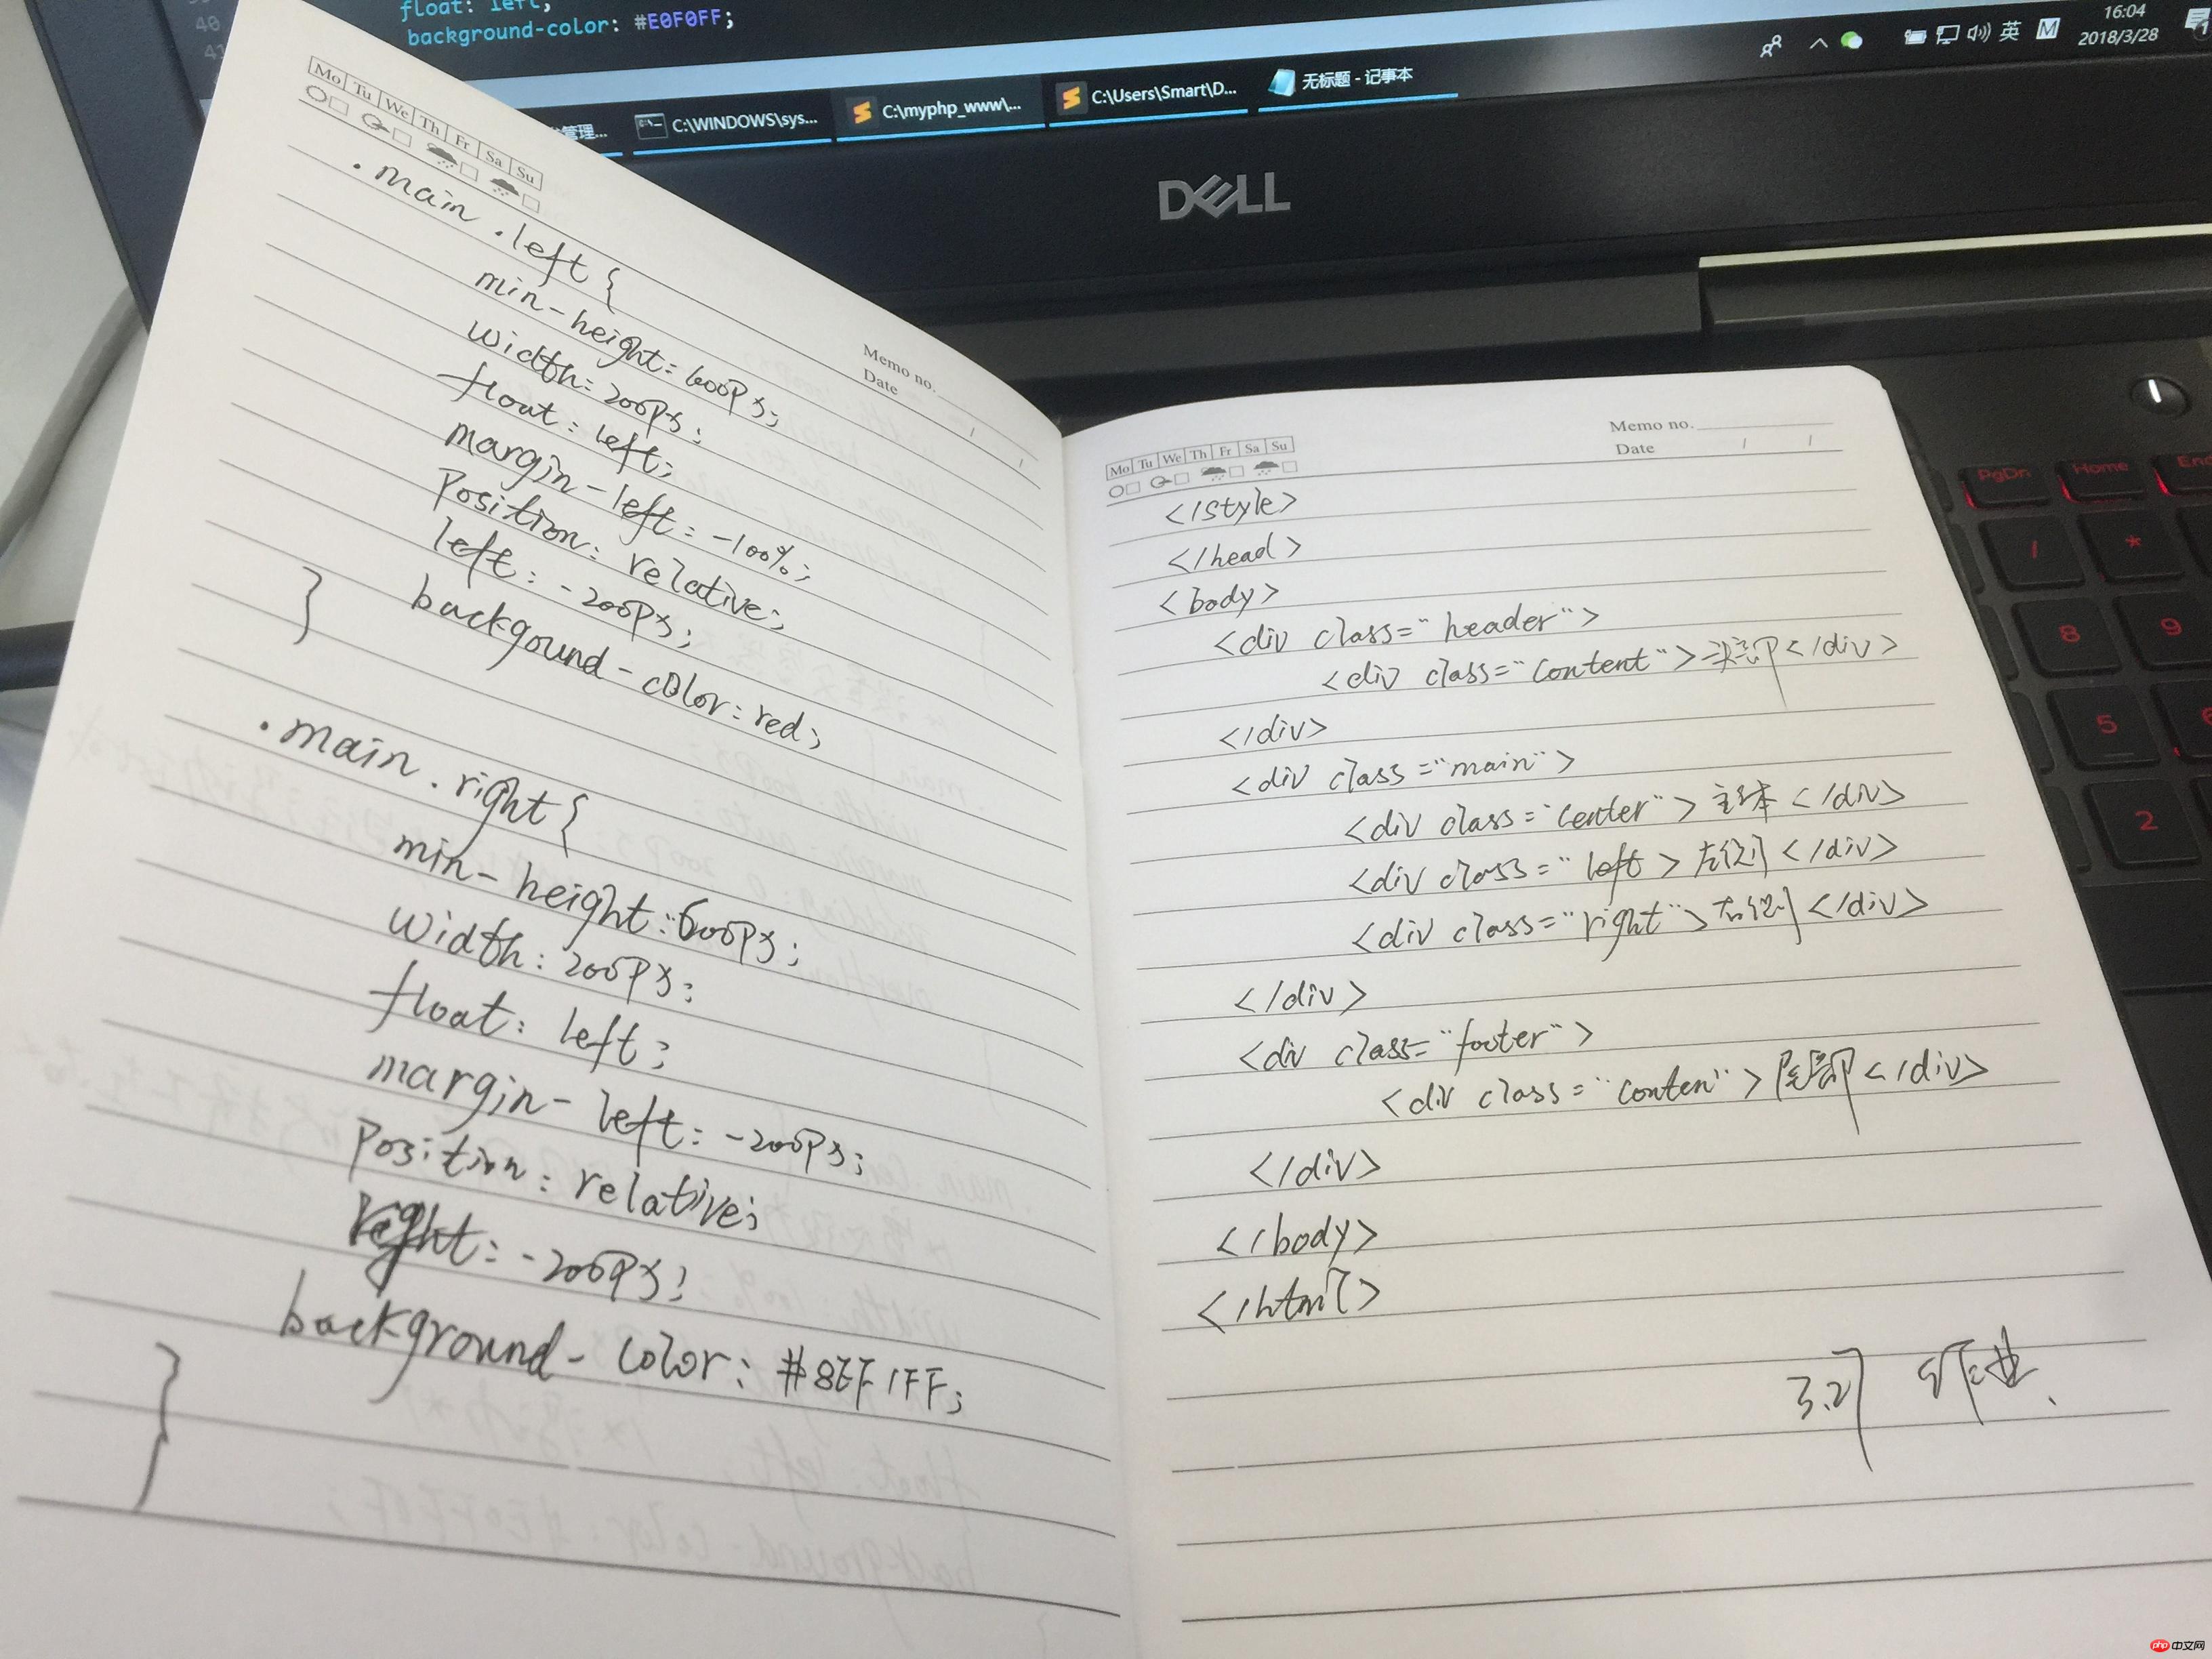 40
41
float: left;
background-color: #E0F0FF;
管理...
C:\WINDOWS\sys...
C:\myphp_www\...
C:\Users\Smart\D...
无标题 - 记事本
英
M
16:04
2018/3/28
DELL
Mo Tu We Th Fr Sa Su
Memo no.
Date / /
.main .left {
min-height: 600px;
width: 200px;
float: left;
margin-left: -100%;
position: relative;
left: -200px;
backgound-color: red;
}
.main .right {
min-height: 600px;
width: 200px;
float: left;
margin-left: -200px;
position: relative;
right: -200px;
background-color: #8EF1FF;
}
Mo Tu We Th Fr Sa Su
Memo no.
Date / /
</style>
</head>
<body>
<div class="header">
<div class="content">头部</div>
</div>
<div class="main">
<div class="center">主体</div>
<div class="left>左侧</div>
<div class="right">右侧</div>
</div>
<div class="footer">
<div class="conten">尾部</div>
</div>
</body>
</html>
3.27 作业.
PgDn
Home
End
/
*
8
9
5
6
2
php中文网